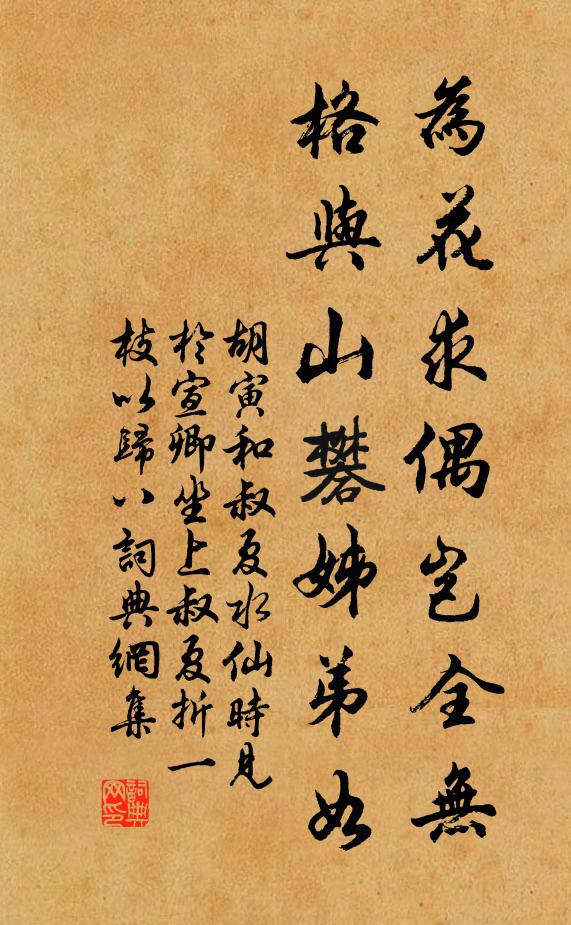 為花求偶豈全無
格與山礬姊弟如
胡寅和叔夏水仙時見
於宣卿坐上叔夏折一
枝以歸八詞典網集
詞典
网印